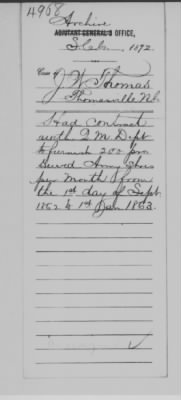 4968
Archive
ADJUTANT GENERAL'S OFFICE,
Feb. 1872.
Case of J. W. Thomas
Thomasville N.C.
Had contract
with Q M Dept
to furnish 200 prs
Sewed Army Shoes
per month from
the 1st day of Sept
1862 to 1st Jan 1863.